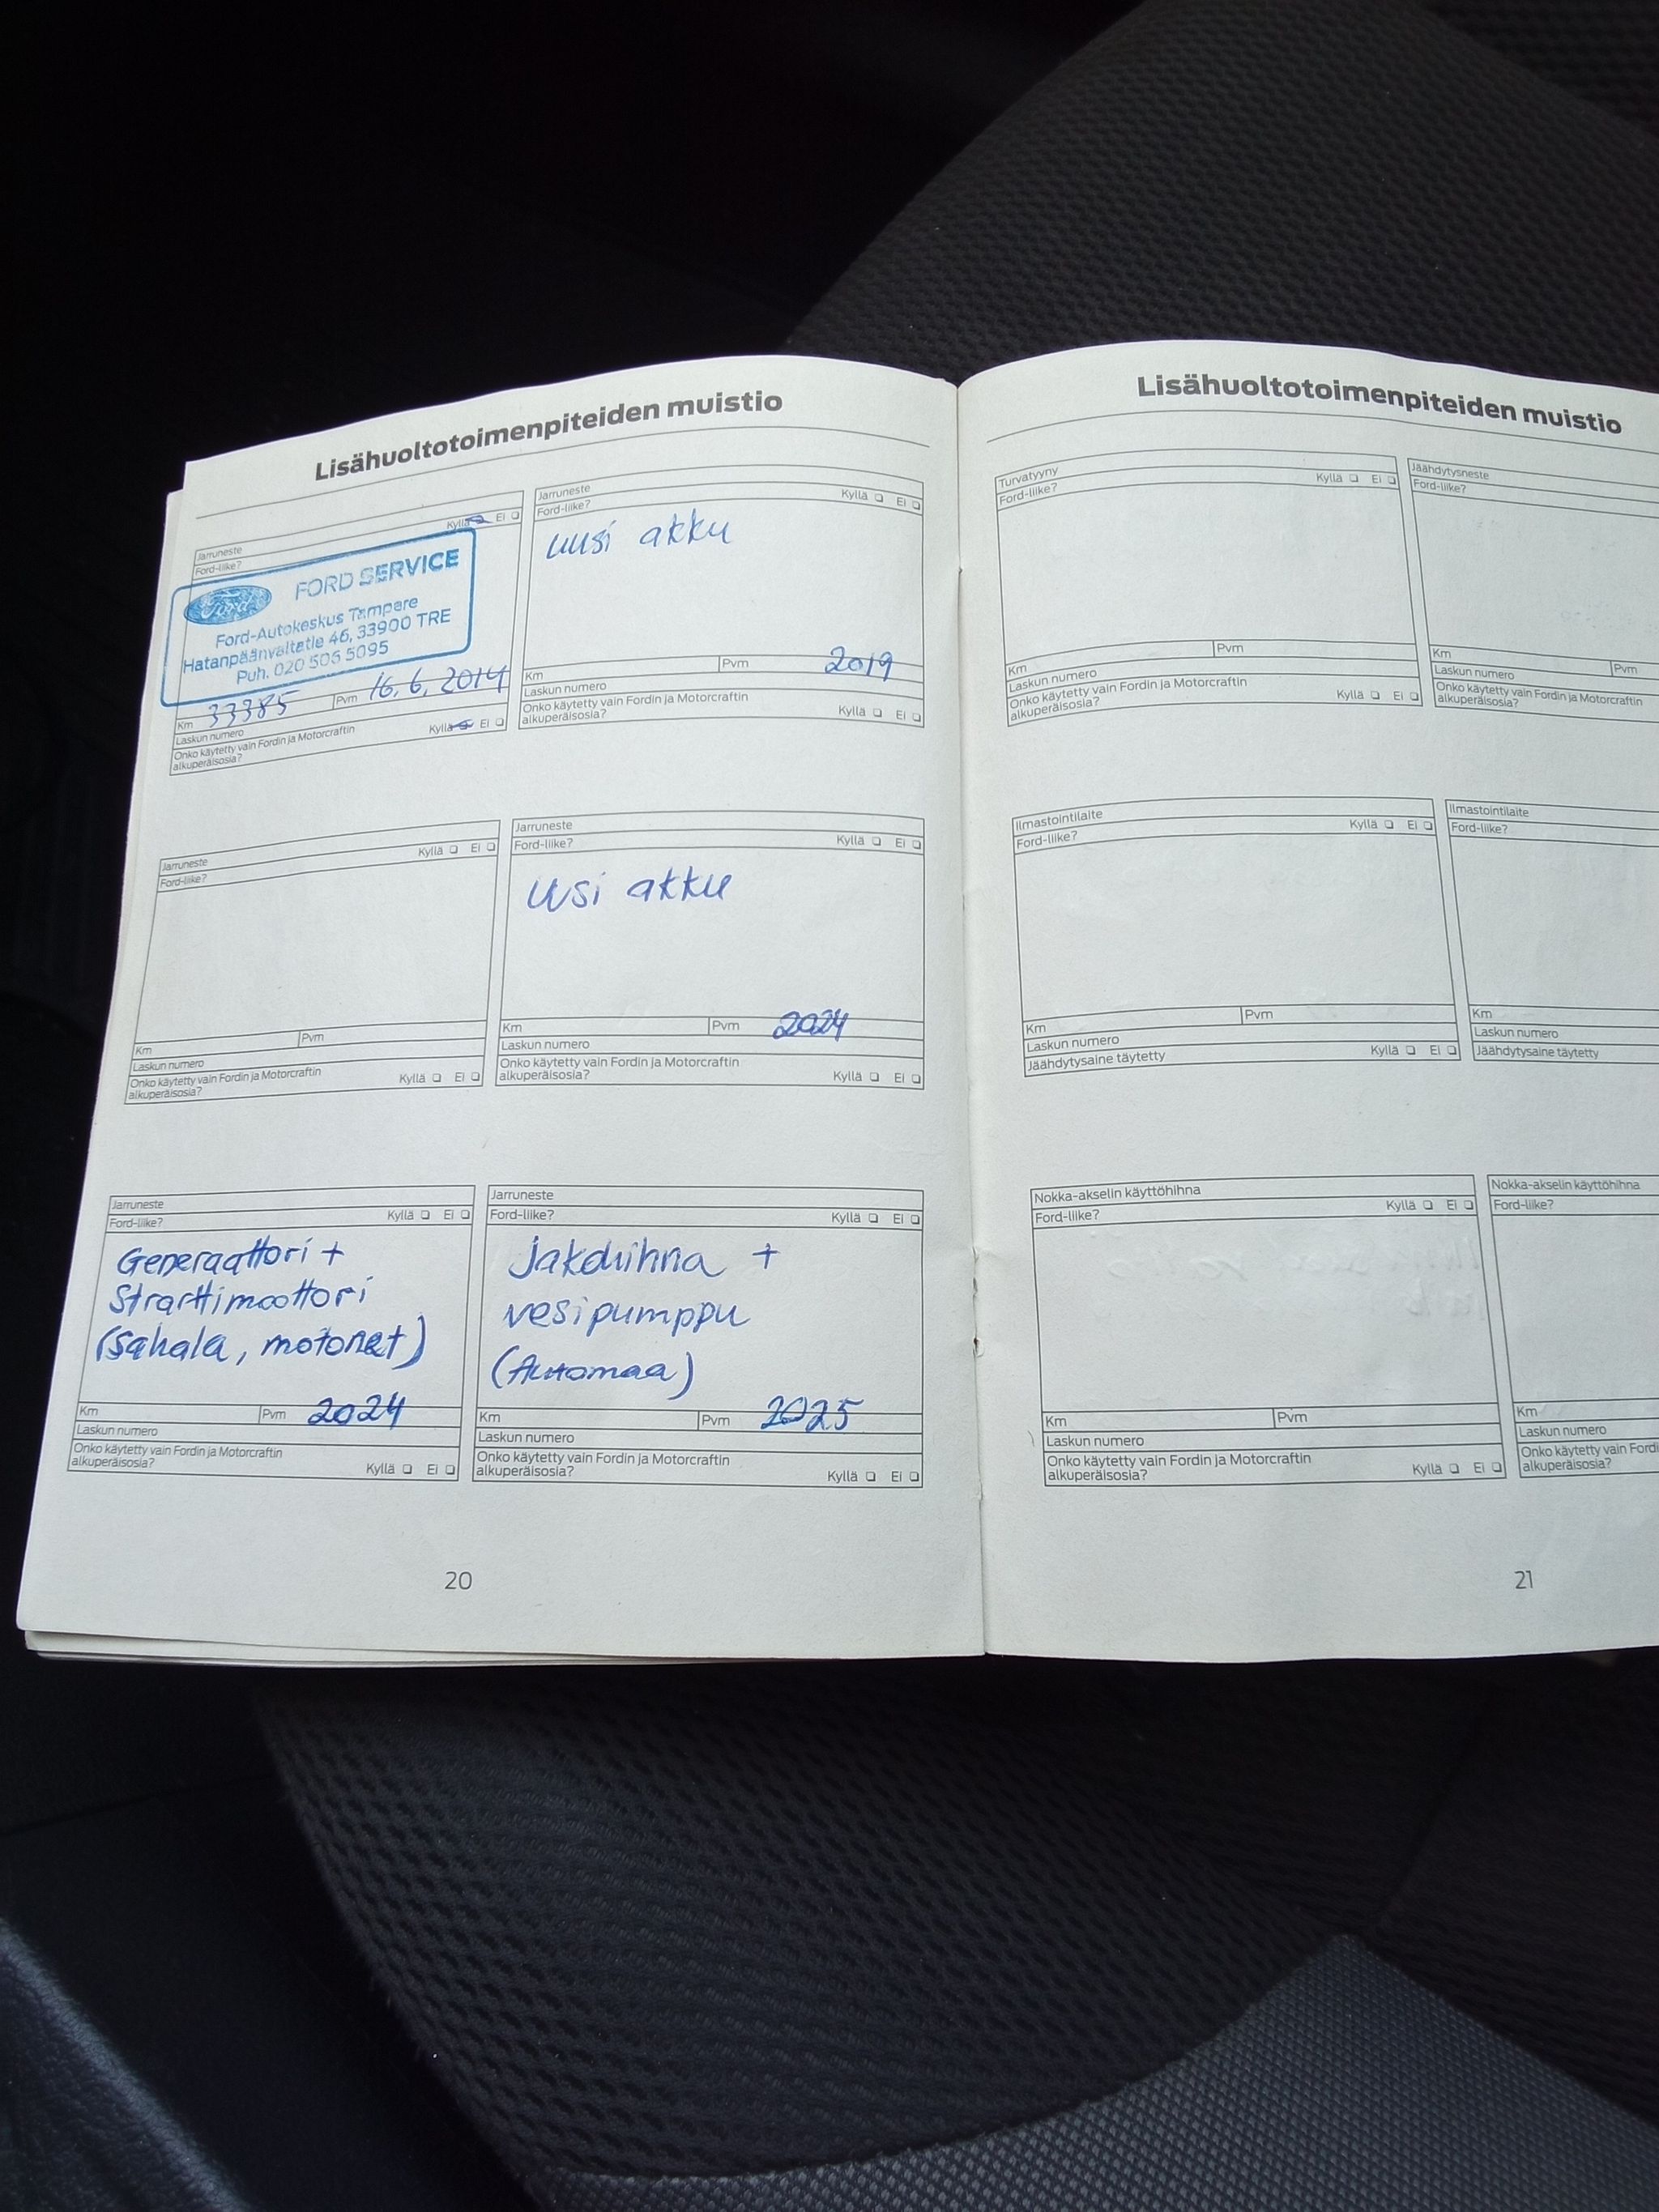 Lisähuoltotoimenpiteiden muistio
Jarruneste
Ford-liike? Kyllä Ei
Ford
FORD SERVICE
Ford-Autokeskus Tampere
Hatanpäänvaltatie 46, 33900 TRE
Puh. 020 506 5095
Km 33385 Pvm 16.6.2014
Laskun numero
Onko käytetty vain Fordin ja Motorcraftin
alkuperäisosia? Kyllä Ei
Jarruneste
Ford-liike? Kyllä Ei
uusi akku
Km Pvm 2019
Laskun numero
Onko käytetty vain Fordin ja Motorcraftin
alkuperäisosia? Kyllä Ei
Jarruneste
Ford-liike? Kyllä Ei
Km Pvm
Laskun numero
Onko käytetty vain Fordin ja Motorcraftin
alkuperäisosia? Kyllä Ei
Jarruneste
Ford-liike? Kyllä Ei
Uusi akku
Km Pvm 2024
Laskun numero
Onko käytetty vain Fordin ja Motorcraftin
alkuperäisosia? Kyllä Ei
Jarruneste
Ford-liike? Kyllä Ei
Generaattori +
Strarttimoottori
(Sahala, motonet)
Km Pvm 2024
Laskun numero
Onko käytetty vain Fordin ja Motorcraftin
alkuperäisosia? Kyllä Ei
Jarruneste
Ford-liike? Kyllä Ei
Jakohihna +
vesipumppu
(Automaa)
Km Pvm 2025
Laskun numero
Onko käytetty vain Fordin ja Motorcraftin
alkuperäisosia? Kyllä Ei
20
Lisähuoltotoimenpiteiden muistio
Turvatyyny
Ford-liike? Kyllä Ei
Km Pvm
Laskun numero
Onko käytetty vain Fordin ja Motorcraftin
alkuperäisosia? Kyllä Ei
Jäähdytysneste
Ford-liike?
Km Pvm
Laskun numero
Onko käytetty vain Fordin ja Motorcraftin
alkuperäisosia?
Ilmastointilaite
Ford-liike? Kyllä Ei
Km Pvm
Laskun numero
Jäähdytysaine täytetty Kyllä Ei
Ilmastointilaite
Ford-liike?
Km
Laskun numero
Jäähdytysaine täytetty
Nokka-akselin käyttöhihna
Ford-liike? Kyllä Ei
Km Pvm
Laskun numero
Onko käytetty vain Fordin ja Motorcraftin
alkuperäisosia? Kyllä Ei
Nokka-akselin käyttöhihna
Ford-liike?
Km
Laskun numero
Onko käytetty vain Fordi
alkuperäisosia?
21